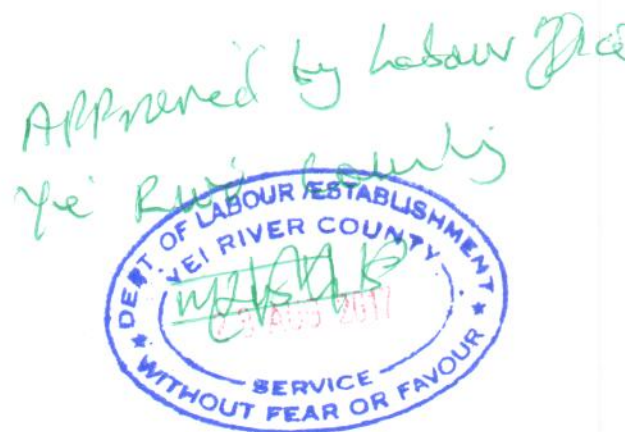 Approved by Labour
Yei River County
DEPT OF LABOUR /ESTABLISHMENT
YEI RIVER COUNTY
AUG 2017
SERVICE
WITHOUT FEAR OR FAVOUR